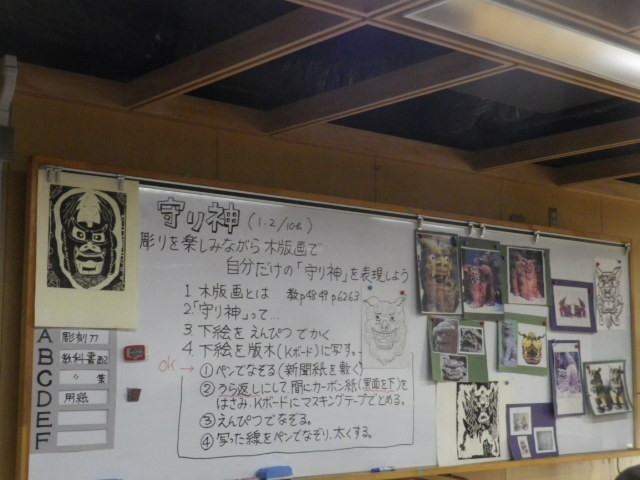 守り神 (1.2/10h)
彫りを楽しみながら木版画で
自分だけの「守り神」を表現しよう
1. 木版画とは 教p48.49.p62.63
2.「守り神」って…
3 下絵をえんぴつでかく
4. 下絵を版木(Kボード)に写す。
ok → ①ペンでなぞる(新聞紙を敷く)
②うら返しにして、間にカーボン紙(黒面を下)を
はさみ、Kボードにマスキングテープでとめる。
③えんぴつでなぞる。
④写った線をペンでなぞり、太くする。
A 彫刻刀
B 教科書配
C 〃 集
D 用紙
E
F